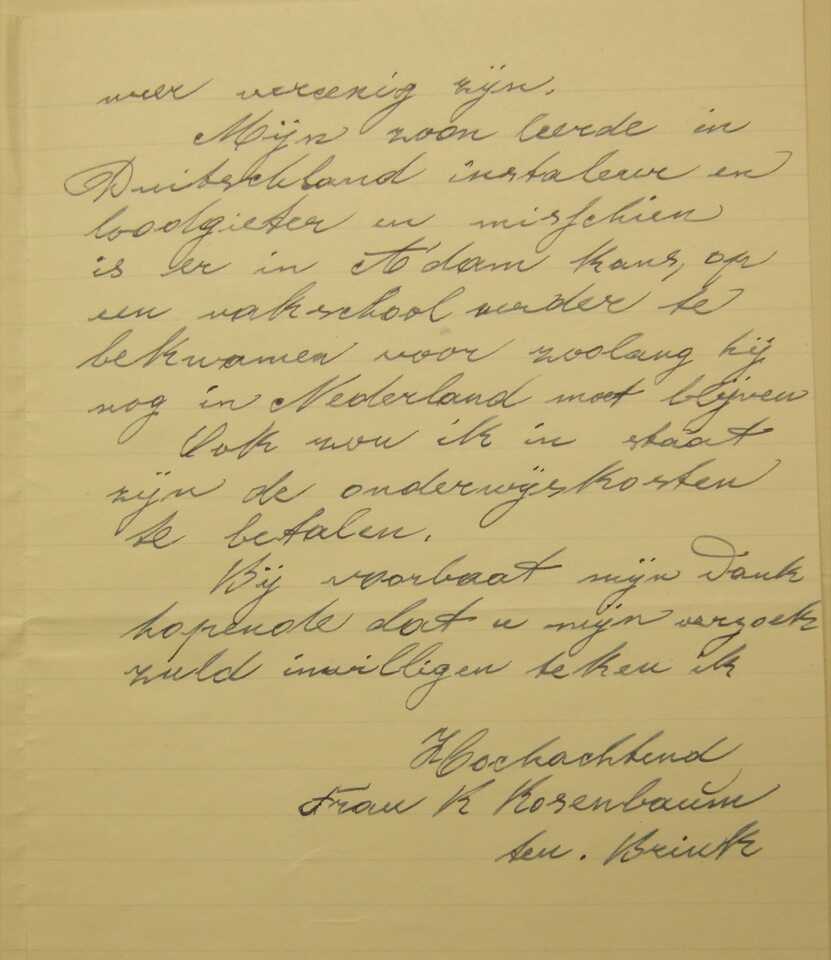 weer vereenig zijn.
Mijn zoon leerde in
Duitschland instaleur en
loodgieter en misschien
is er in A'dam kans, op
een vakschool verder te
bekwamen voor zoolang hij
nog in Nederland moet blijven
Ook zou ik in staat
zijn de onderwijskosten
te betalen.
Bij voorbaat mijn Dank
hopende dat u mijn verzoek
zuld inwilligen teken ik
Hochachtend
Frau K Rosenbaum
ten. Brink